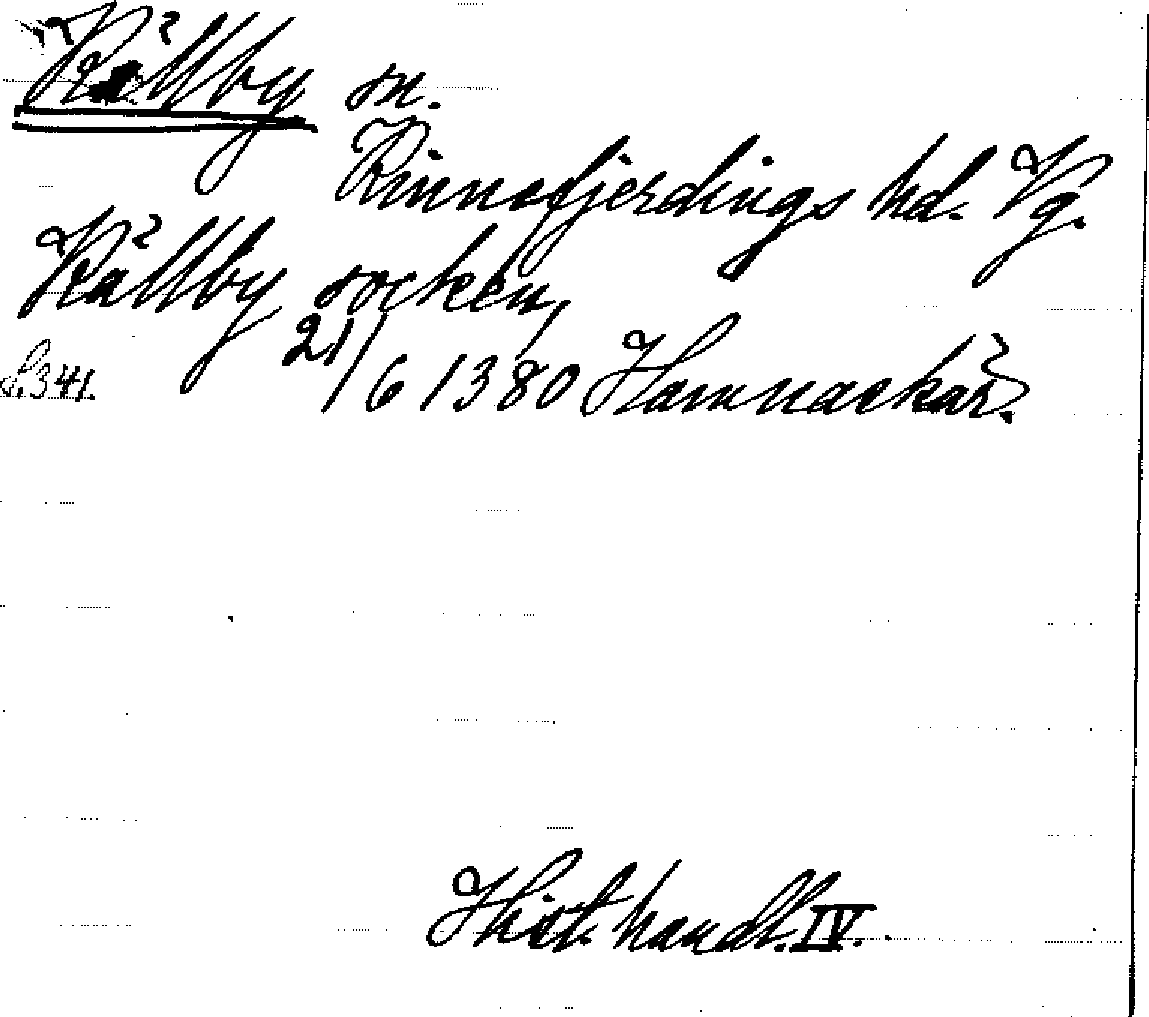 Källby sn.
Kinnefjerdings hd. Vg.
Källby socken,
S. 341. 21/6 1380 Hamnaekär.
Hist. handl. IV.